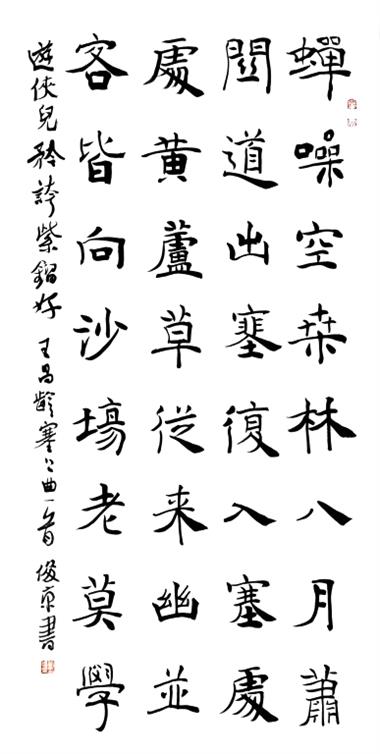 蟬噪空桒林八月蕭
關道出塞復入塞處
處黃蘆草從来幽並
客皆向沙塲老莫學
遊俠兒矜誇紫騮好 王昌齡塞上曲一首 俊东書